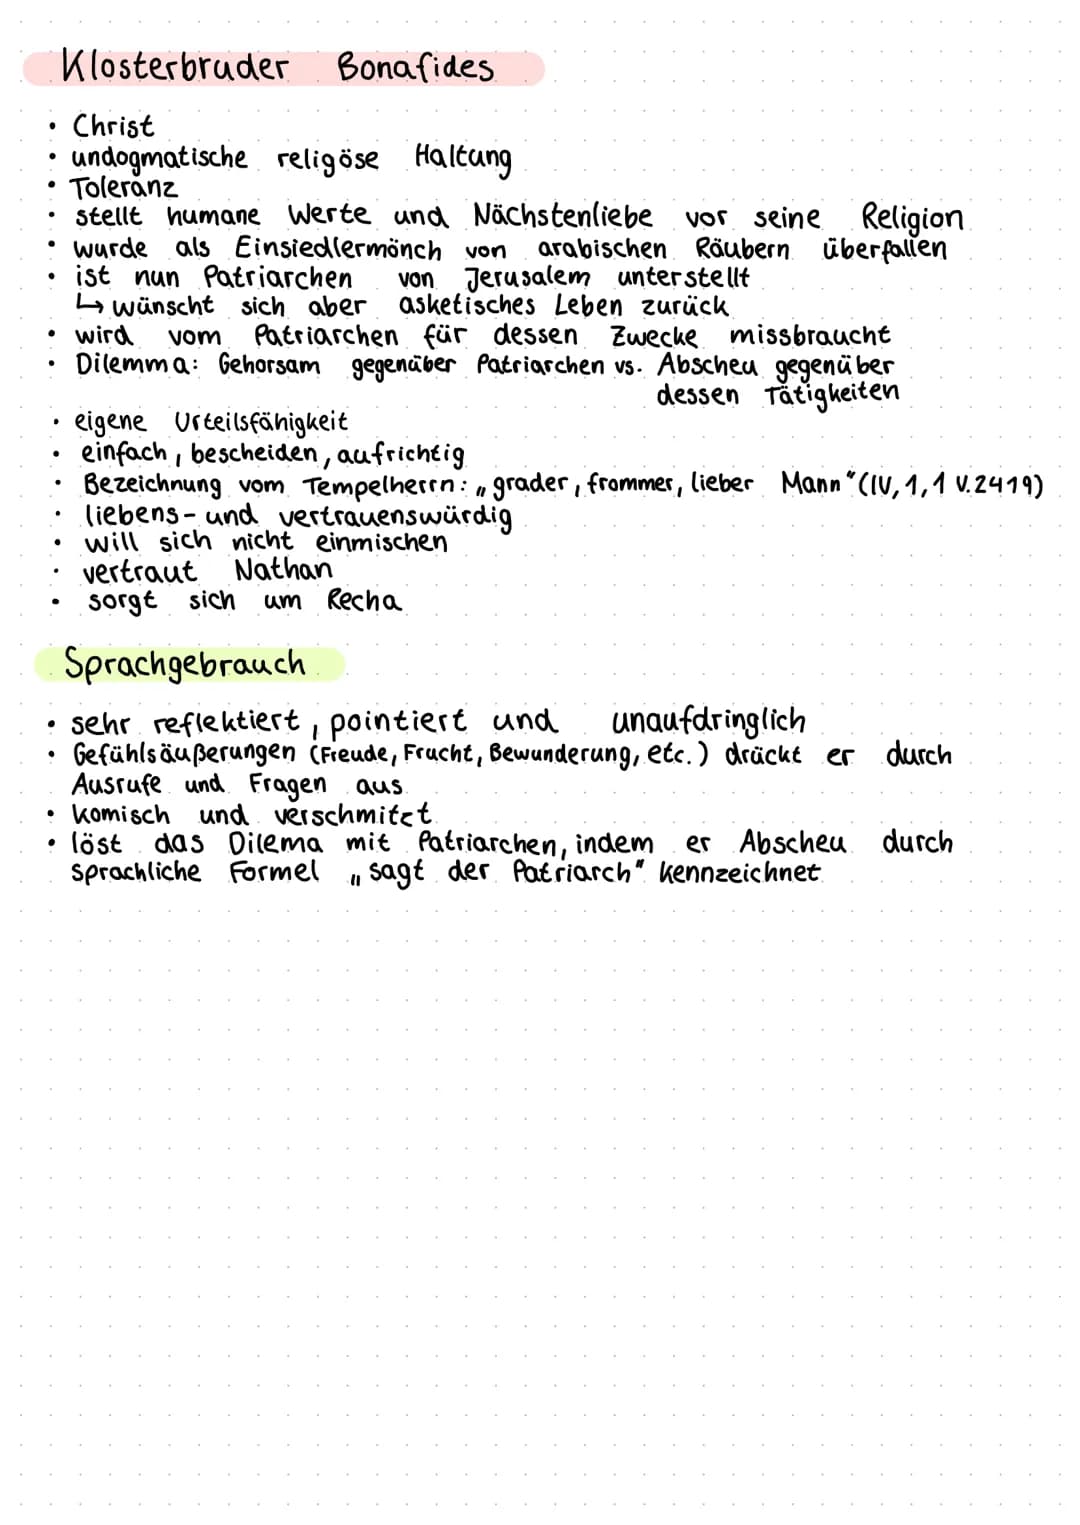 Klosterbruder Bonafides
• Christ
• undogmatische religöse Haltung
• Toleranz
• stellt humane Werte und Nächstenliebe vor seine Religion
• wurde als Einsiedlermönch von arabischen Räubern überfallen
• ist nun Patriarchen von Jerusalem unterstellt
↳ wünscht sich aber asketisches Leben zurück
• wird vom Patriarchen für dessen Zwecke missbraucht
• Dilemma: Gehorsam gegenüber Patriarchen vs. Abscheu gegenüber
dessen Tätigkeiten
• eigene Urteilsfähigkeit
• einfach, bescheiden, aufrichtig
• Bezeichnung vom Tempelherrn: „grader, frommer, lieber Mann“ (IV, 1, 1 V. 2419)
• liebens- und vertrauenswürdig
• will sich nicht einmischen
• vertraut Nathan
• sorgt sich um Recha
Sprachgebrauch
• sehr reflektiert, pointiert und unaufdringlich
• Gefühlsäußerungen (Freude, Frucht, Bewunderung, etc.) drückt er durch
Ausrufe und Fragen aus
• komisch und verschmitzt
• löst das Dilema mit Patriarchen, indem er Abscheu durch
sprachliche Formel „sagt der Patriarch“ kennzeichnet